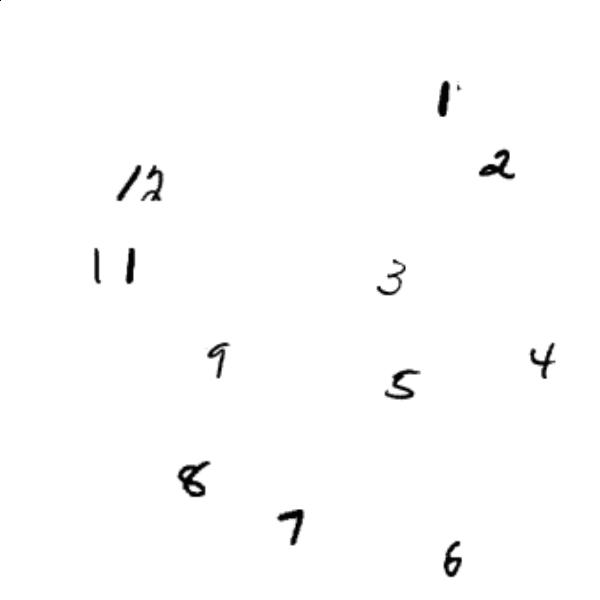 1
2
12
11
3
9
4
5
8
7
6